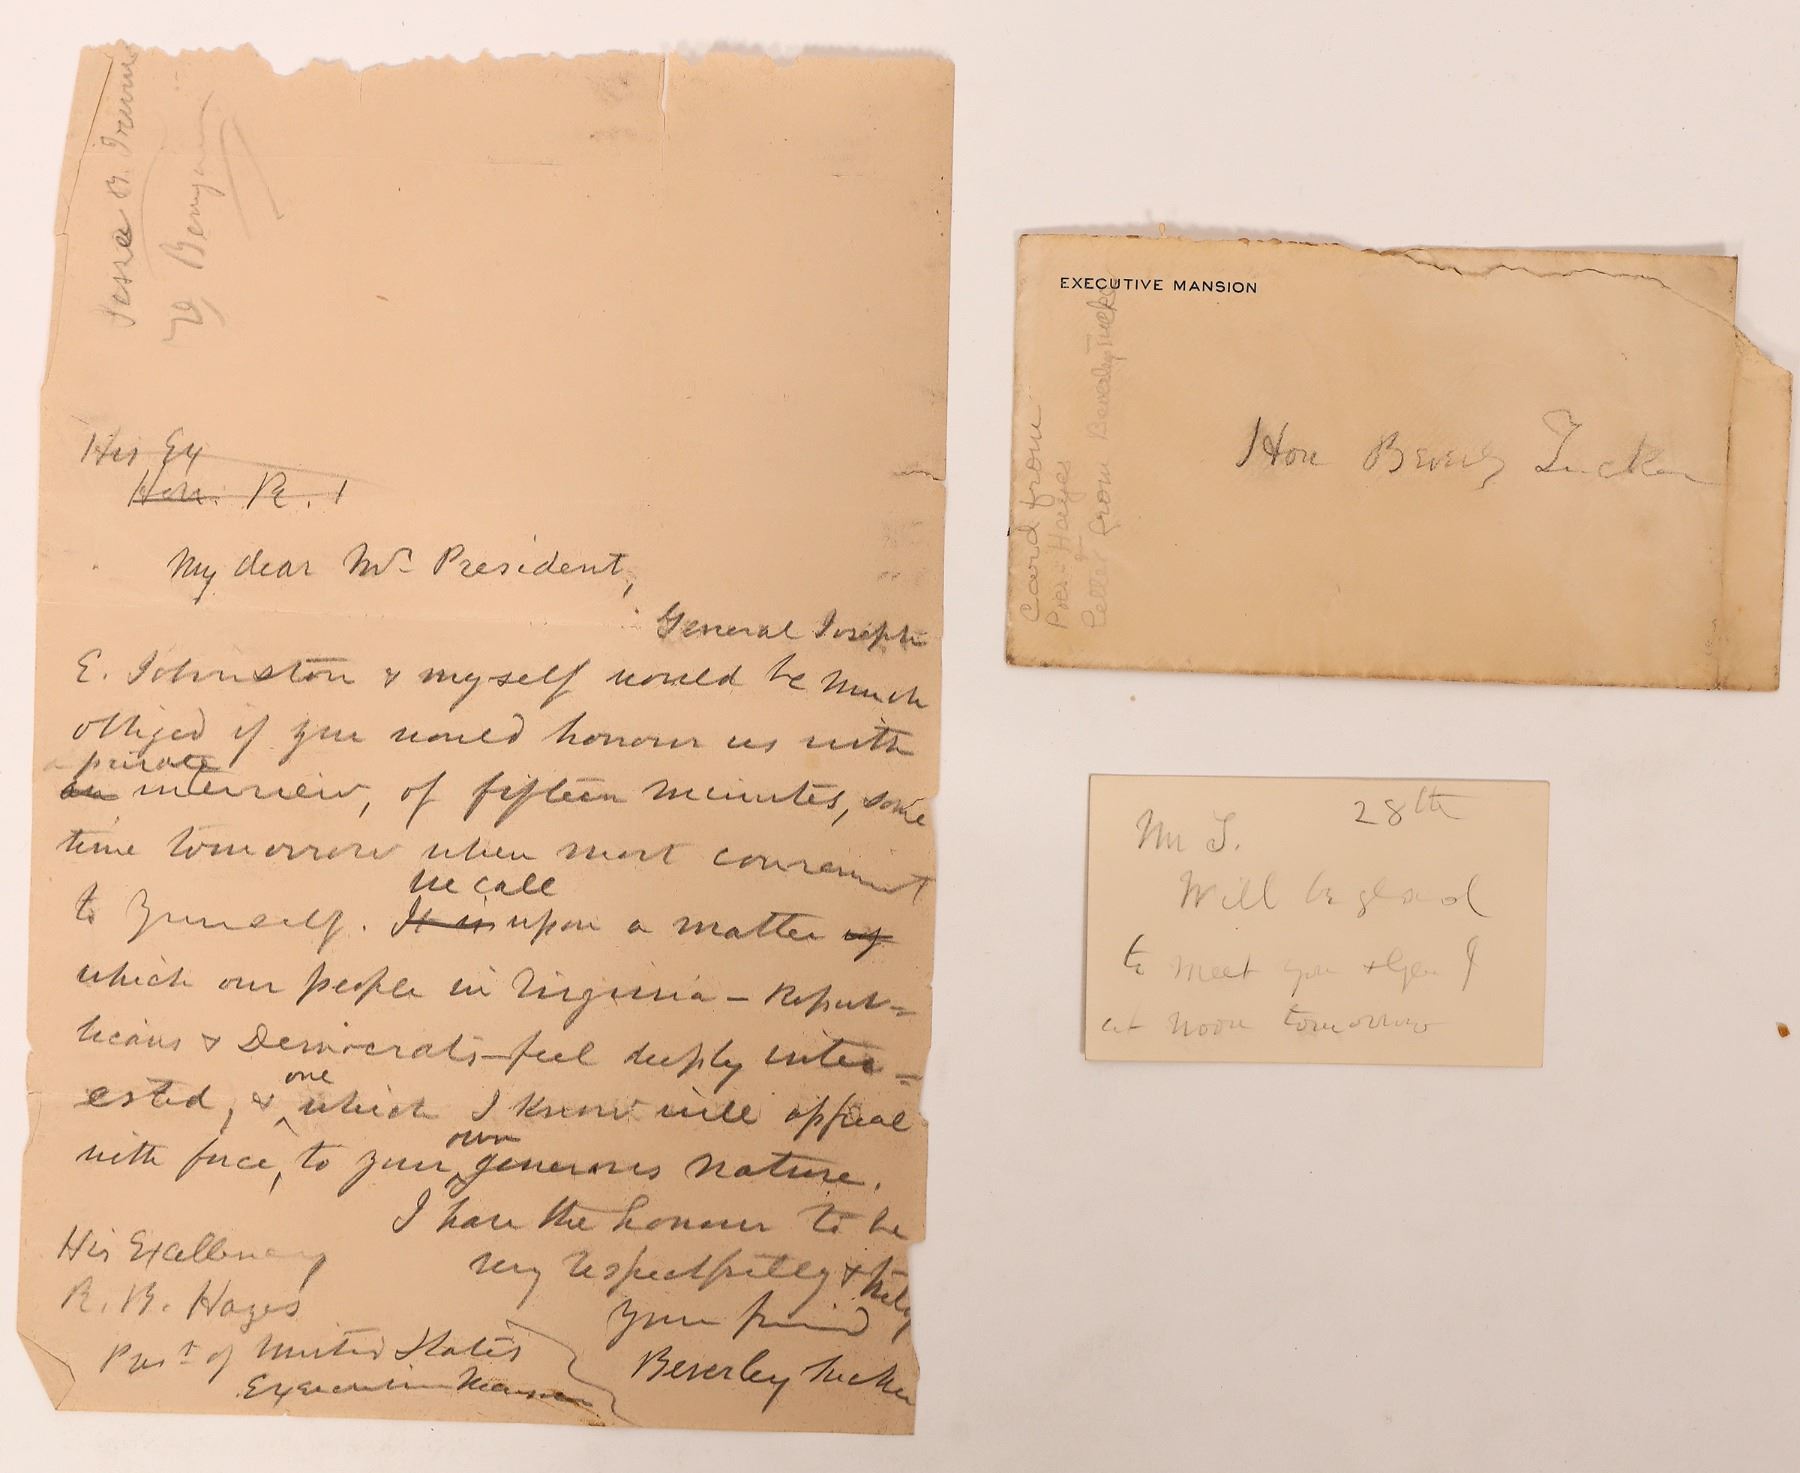 Jesse B.
His Ex
Hon. R.
My dear Mr President,
General Joseph
E. Johnston & myself would be much
obliged if you would honour us with
a private
an interview, of fifteen minutes, some
time tomorrow when most convenient
We call
to yourself. It is upon a matter of
which our people in Virginia - Repub=
licans & Democrats - feel deeply inter=
one
ested, & which I know will appeal
own
with force, to your generous nature.
I have the honour to be
very respectfully & truly
your friend
Beverley Tucker
His Excellency
R. B. Hayes
Prest of United States
Executive Mansion
EXECUTIVE MANSION
Hon Beverly Tucker
Card from
Pres. Hayes
&
Letter from Beverley Tucker
28th
Mr T.
Will be glad
to meet you & Gen J
at noon tomorrow